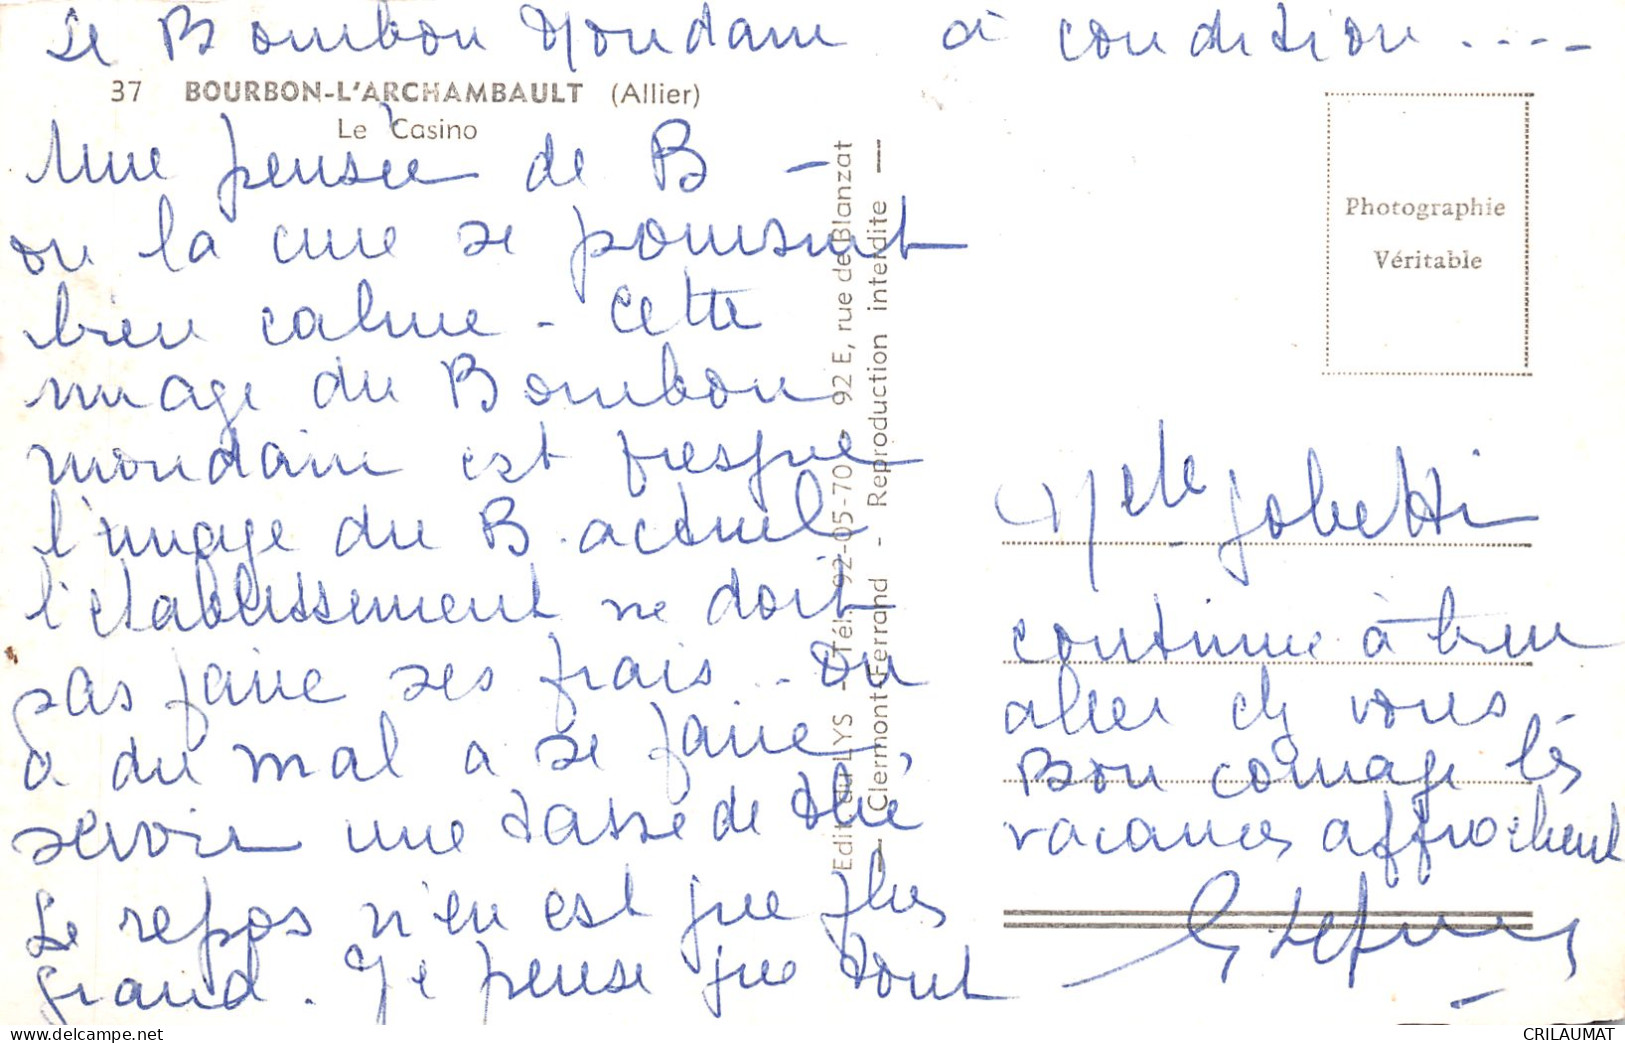 Le Bourbon Mondain à condition ....
37 BOURBON-L'ARCHAMBAULT (Allier)
Le Casino
Une pensée de B -
ou la cure se poursuit
bien calme - Cette
image du Bourbon
mondain est presque
l'image du B. actuel
l'établissement ne doit
pas faire ses frais .. On
a du mal a se faire,
servoir une tasse de thé
Le repos n'en est que plus
grand. Je pense que tout
Edit. du LYS - Tél. 92-05-70 - 92 E, rue de Blanzat
— Clermont-Ferrand - Reproduction interdite —
Photographie
Véritable
Melle Gobetti
continue à bien
aller chz vous -
Bon courage les
vacances approchent
CRILAUMAT